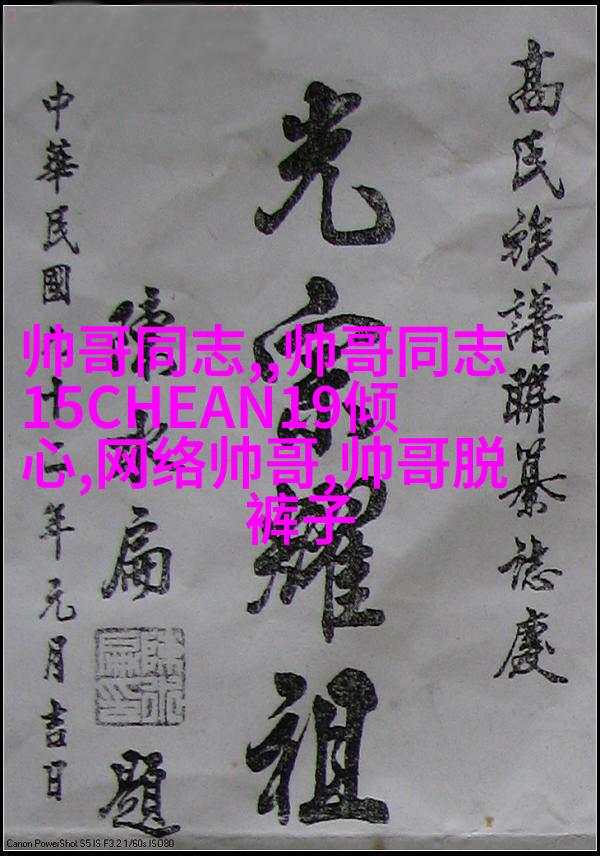 高氏族譜聯纂誌慶
光宗耀祖
陳水扁題
中華民國九十二年元月吉日
帅哥同志,,帅哥同志
15CHEAN19倾
心,网络帅哥,帅哥脱
裤子
Canon PowerShot S5 IS F3.2 1/60s ISO80